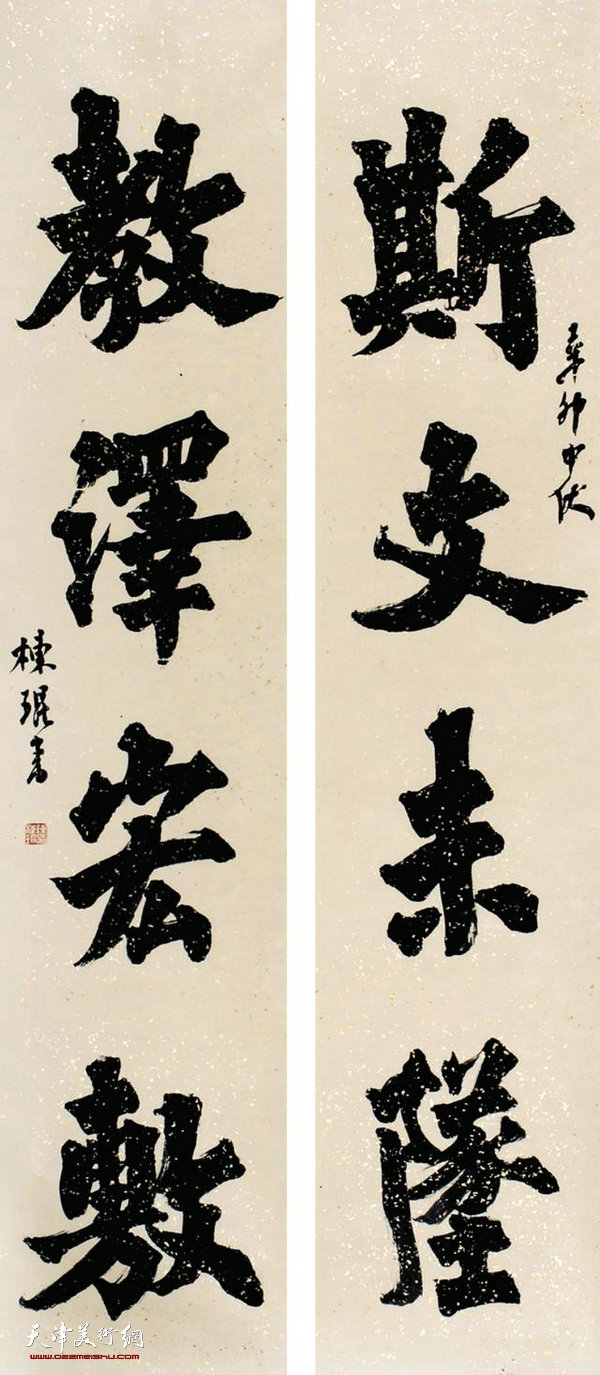 斯文未墜
辛卯中伏
教澤宏敷
棟琨書
天津美術網
www.022meishu.com